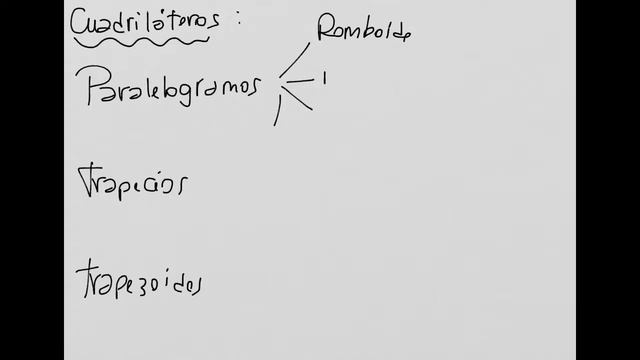 Cuadriláteros :
Romboide
Paralelogramos
Trapecios
Trapezoides